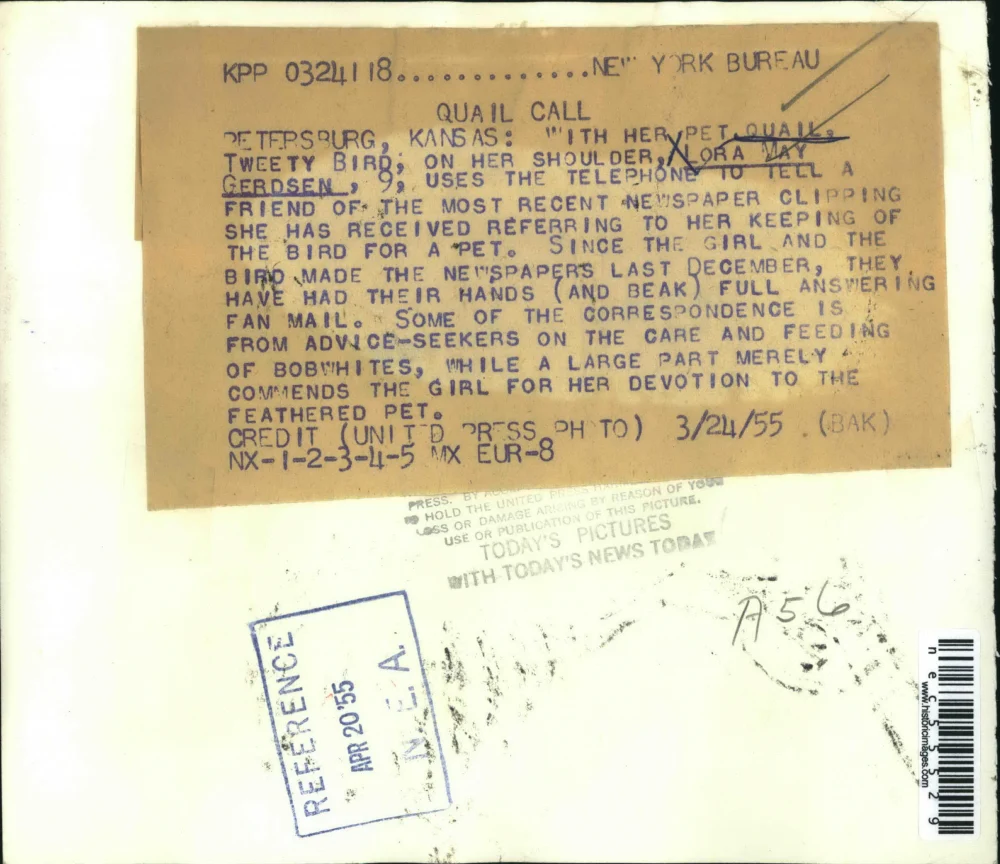 KPP 0324118..............NEW YORK BUREAU
QUAIL CALL
PETERSBURG, KANSAS: WITH HER PET QUAIL,
TWEETY BIRD, ON HER SHOULDER, LORA MAY
GERDSEN, 9, USES THE TELEPHONE TO TELL A
FRIEND OF THE MOST RECENT NEWSPAPER CLIPPING
SHE HAS RECEIVED REFERRING TO HER KEEPING OF
THE BIRD FOR A PET. SINCE THE GIRL AND THE
BIRD MADE THE NEWSPAPERS LAST DECEMBER, THEY
HAVE HAD THEIR HANDS (AND BEAK) FULL ANSWERING
FAN MAIL. SOME OF THE CORRESPONDENCE IS
FROM ADVICE-SEEKERS ON THE CARE AND FEEDING
OF BOBWHITES, WHILE A LARGE PART MERELY
COMMENDS THE GIRL FOR HER DEVOTION TO THE
FEATHERED PET.
CREDIT (UNITED PRESS PHOTO) 3/24/55 (BAK)
NX-1-2-3-4-5 MX EUR-8
PRESS. BY
HOLD THE UNITED PRESS
LOSS OR DAMAGE ARISING BY REASON OF YOUR
USE OR PUBLICATION OF THIS PICTURE.
TODAY'S PICTURES
WITH TODAY'S NEWS TODAY
A56
REFERENCE
APR 20 '55
N.E.A.
www.historicimages.com
nec55529